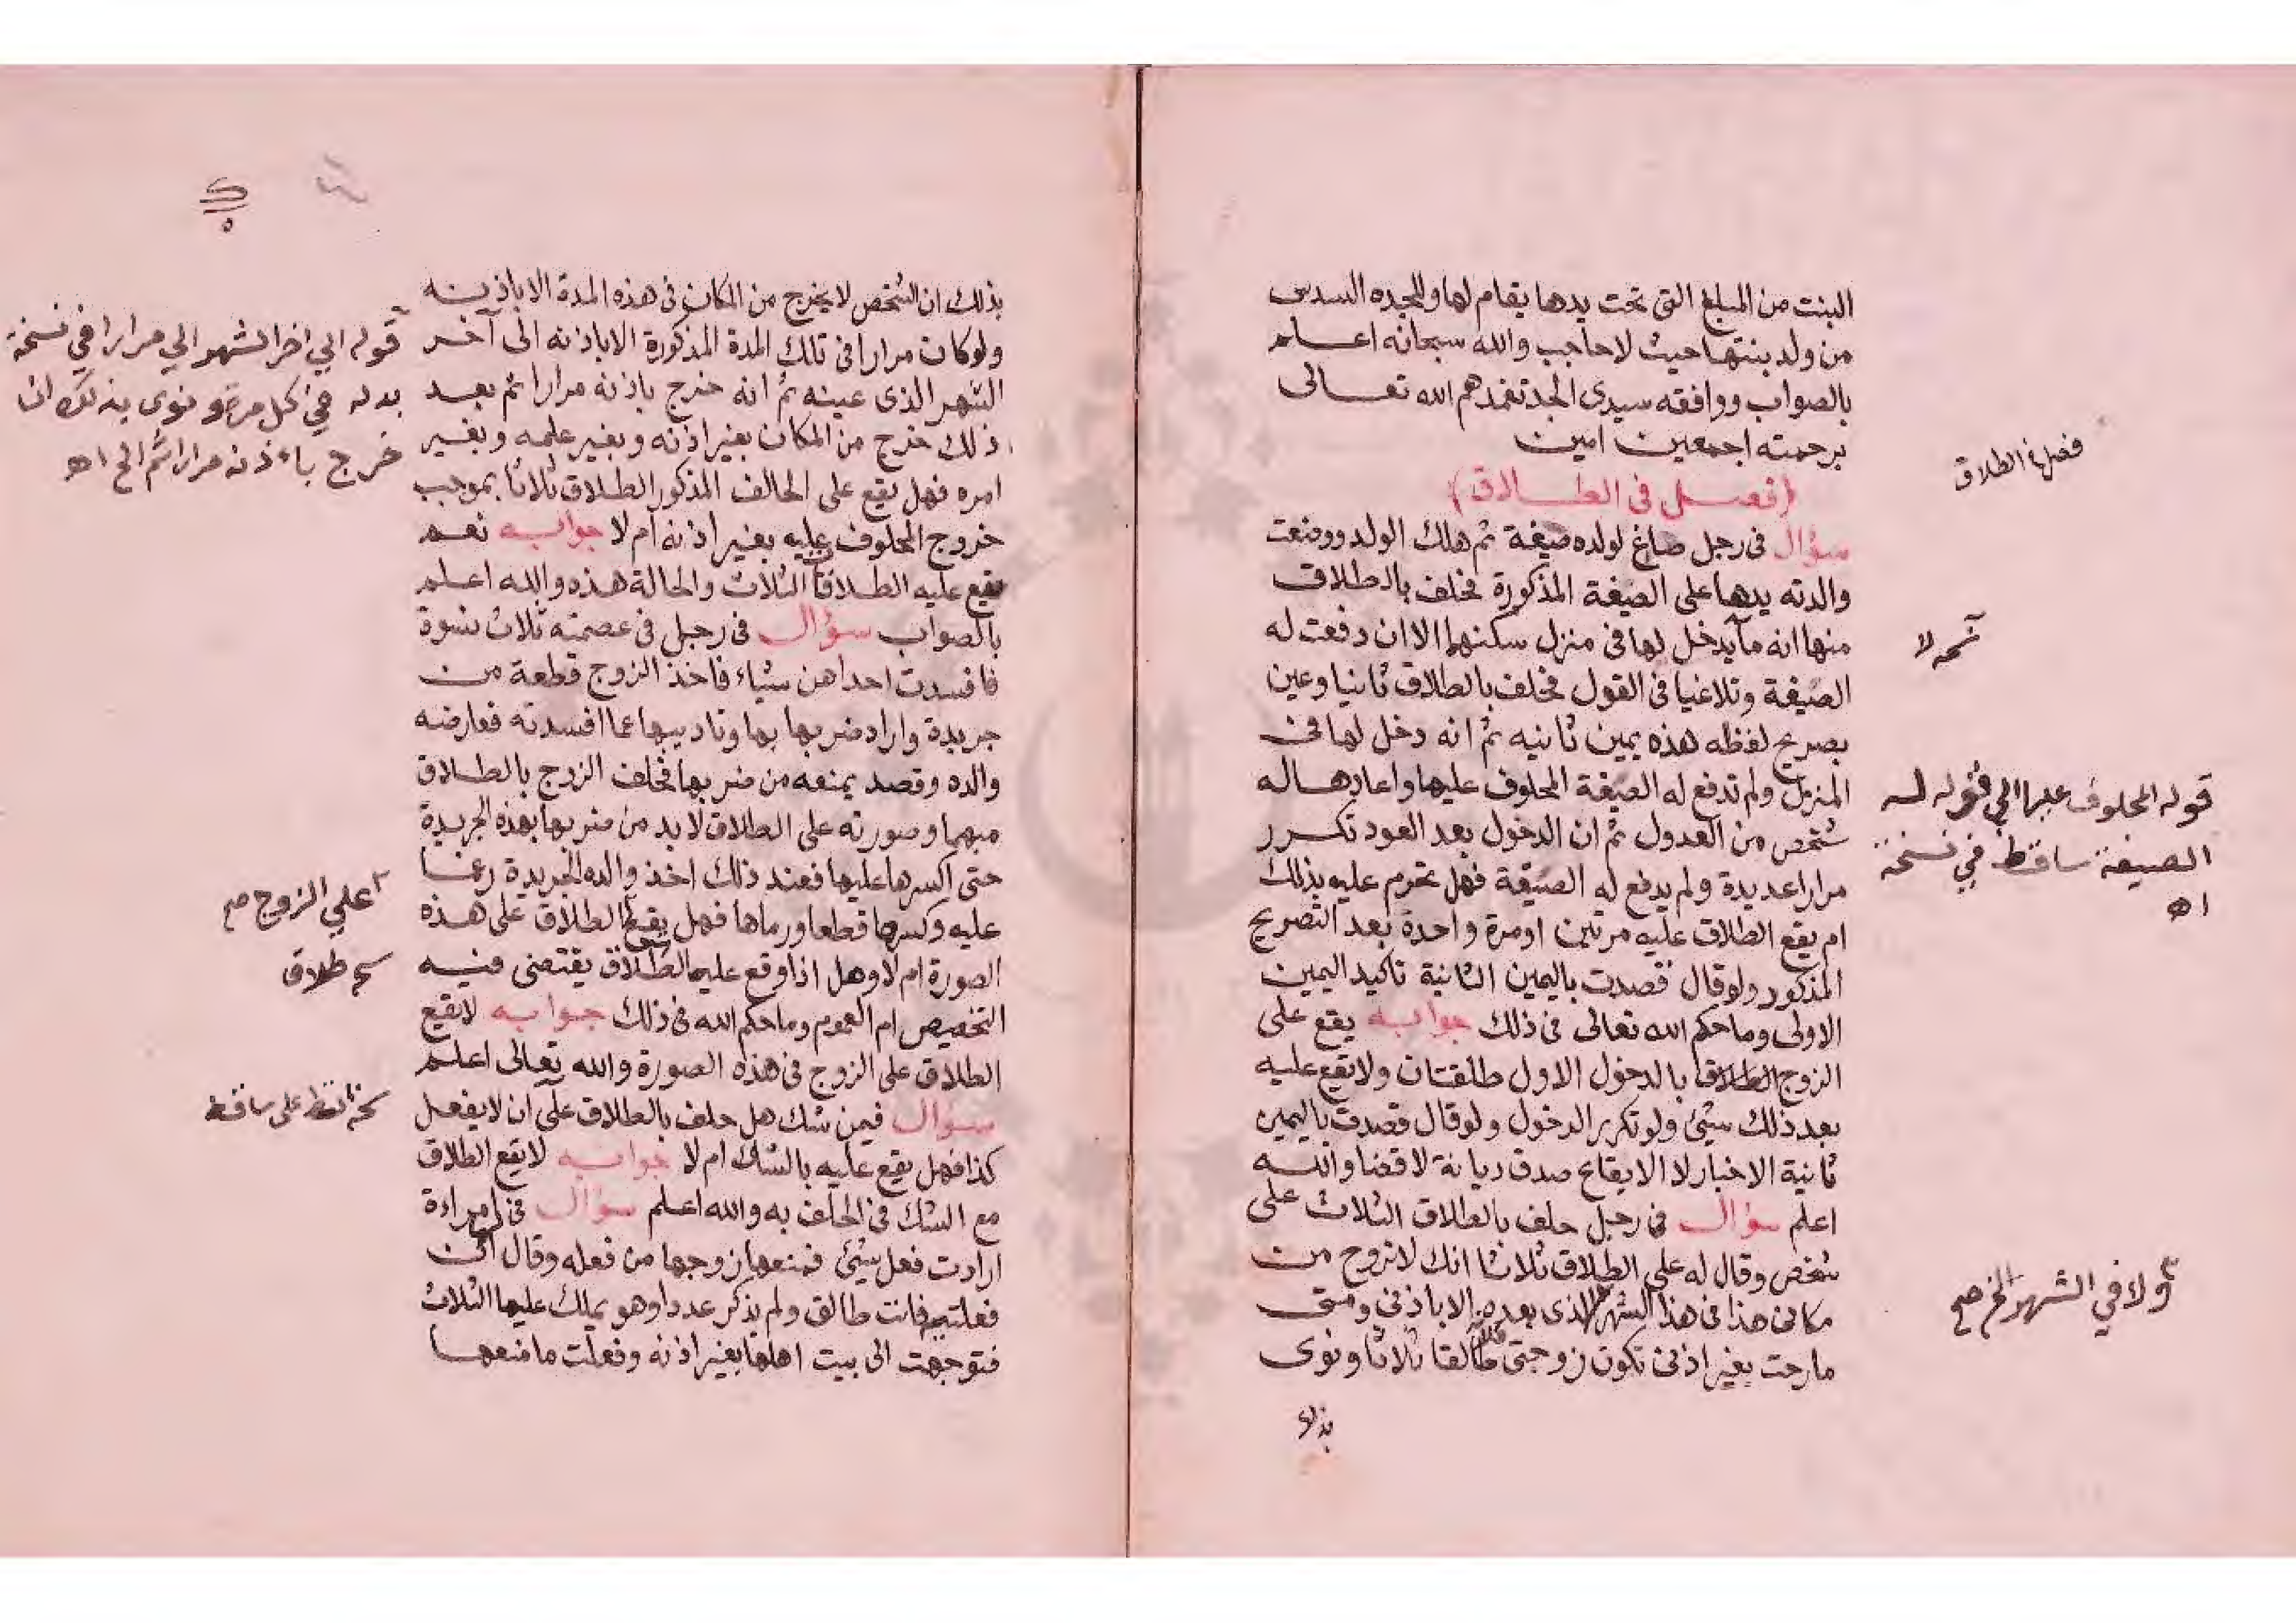 البنت من المبلغ التى تحت يدها يقام لها وللجده السدس
من ولد بنتها حيث لا حاجب والله سبحانه اعلم
بالصواب ووافقه سيدى الجد تغمدهم الله تعالى
برحمته اجمعين امين
(فصل فى الطلاق)
سؤال فى رجل صاغ لولده صيغة ثم هلك الولد ووضعت
والدته يدها على الصيغة المذكورة فحلف بالطلاق
منها انه ما يدخل لها فى منزل سكنهما الا ان دفعت له
الصيغة وتلاغيا فى القول فحلف بالطلاق ثانيا وعين
بصريح لفظه هذه يمين ثانيه ثم انه دخل لها فى
المنزل ولم تدفع له الصيغة المحلوف عليها واعادها له
شخص من العدول ثم ان الدخول بعد العود تكرر
مرارا عديدة ولم يدفع له الصيغة فهل تحرم عليه بذلك
ام يقع الطلاق عليه مرتين او مرة واحدة بعد التصريح
المذكور ولو قال قصدت باليمين الثانية تاكيد اليمين
الاولى وما حكم الله تعالى فى ذلك جوابه يقع على
الزوج الطلاق بالدخول الاول طلقتان ولا يقع عليه
بعد ذلك شيئ ولو تكرر الدخول ولو قال قصدت باليمين
ثانية الاخبار لا الايقاع صدق ديانة لا قضا والله
اعلم سؤال فى رجل حلف بالطلاق الثلاث على
شخص وقال له على الطلاق ثلاثا انك لا تروح من
مكانى هذا فى هذا الشهر الذى بعده الا باذنى ومتى
ما رحت بغير اذنى تكون زوجتى طالقا ثلاثا ونوى
بذلك
فصل فى الطلاق
نسخه لا
قوله المحلوف عليها الي قوله له
الصيغة ساقط في نسخة
اه
ولا في الشهر الخ صح
بذلك ان الشخص لا يخرج من المكان فى هذه المدة الا باذنه
ولو كان مرارا فى تلك المدة المذكورة الا باذنه الى آخر
الشهر الذى عينه ثم انه خرج باذنه مرارا ثم بعد
ذلك خرج من المكان بغير اذنه وبغير علمه وبغير
امره فهل يقع على الحالف المذكور الطلاق ثلاثا بموجب
خروج المحلوف عليه بغير اذنه ام لا جوابه نعم
يقع عليه الطلاق الثلاث والحالة هذه والله اعلم
بالصواب سؤال فى رجل فى عصمته ثلاث نسوة
فافسدت احداهن شياء فاخذ الزوج قطعة من
جريدة واراد ضربها بها وتاديبها عما افسدته فعارضه
والده وقصد يمنعه من ضربها فحلف الزوج بالطلاق
مبهما وصورته على الطلاق لا بد من ضربها بهذه الجريدة
حتى اكسرها عليها فعند ذلك اخذ والده الجريدة رغما
عليه وكسرها قطعا ورماها فهل يقع الطلاق على هذه
الصورة ام لا وهل اذا وقع عليه الطلاق يقتضى فيه
التخصيص ام العموم وما حكم الله فى ذلك جوابه لا يقع
الطلاق على الزوج فى هذه الصورة والله تعالى اعلم
سؤال فيمن شك هل حلف بالطلاق على ان لا يفعل
كذا فهل يقع عليه بالشك ام لا جوابه لا يقع الطلاق
مع الشك فى الحلف به والله اعلم سؤال فى امراءة
ارادت فعل شيئ فمنعها زوجها من فعله وقال ان
فعلتيه فانت طالق ولم يذكر عددا وهو يملك عليها الثلاث
فتوجهت الى بيت اهلها بغير اذنه وفعلت ما منعها
قوله الي اخر الشهر الي مرارا في نسخة
بدله في كل مرة ونوى بذلك ان
خرج باذنه مرارا ثم الخ اه
علي الزوج صح
طلاق
لفظ على ساقط